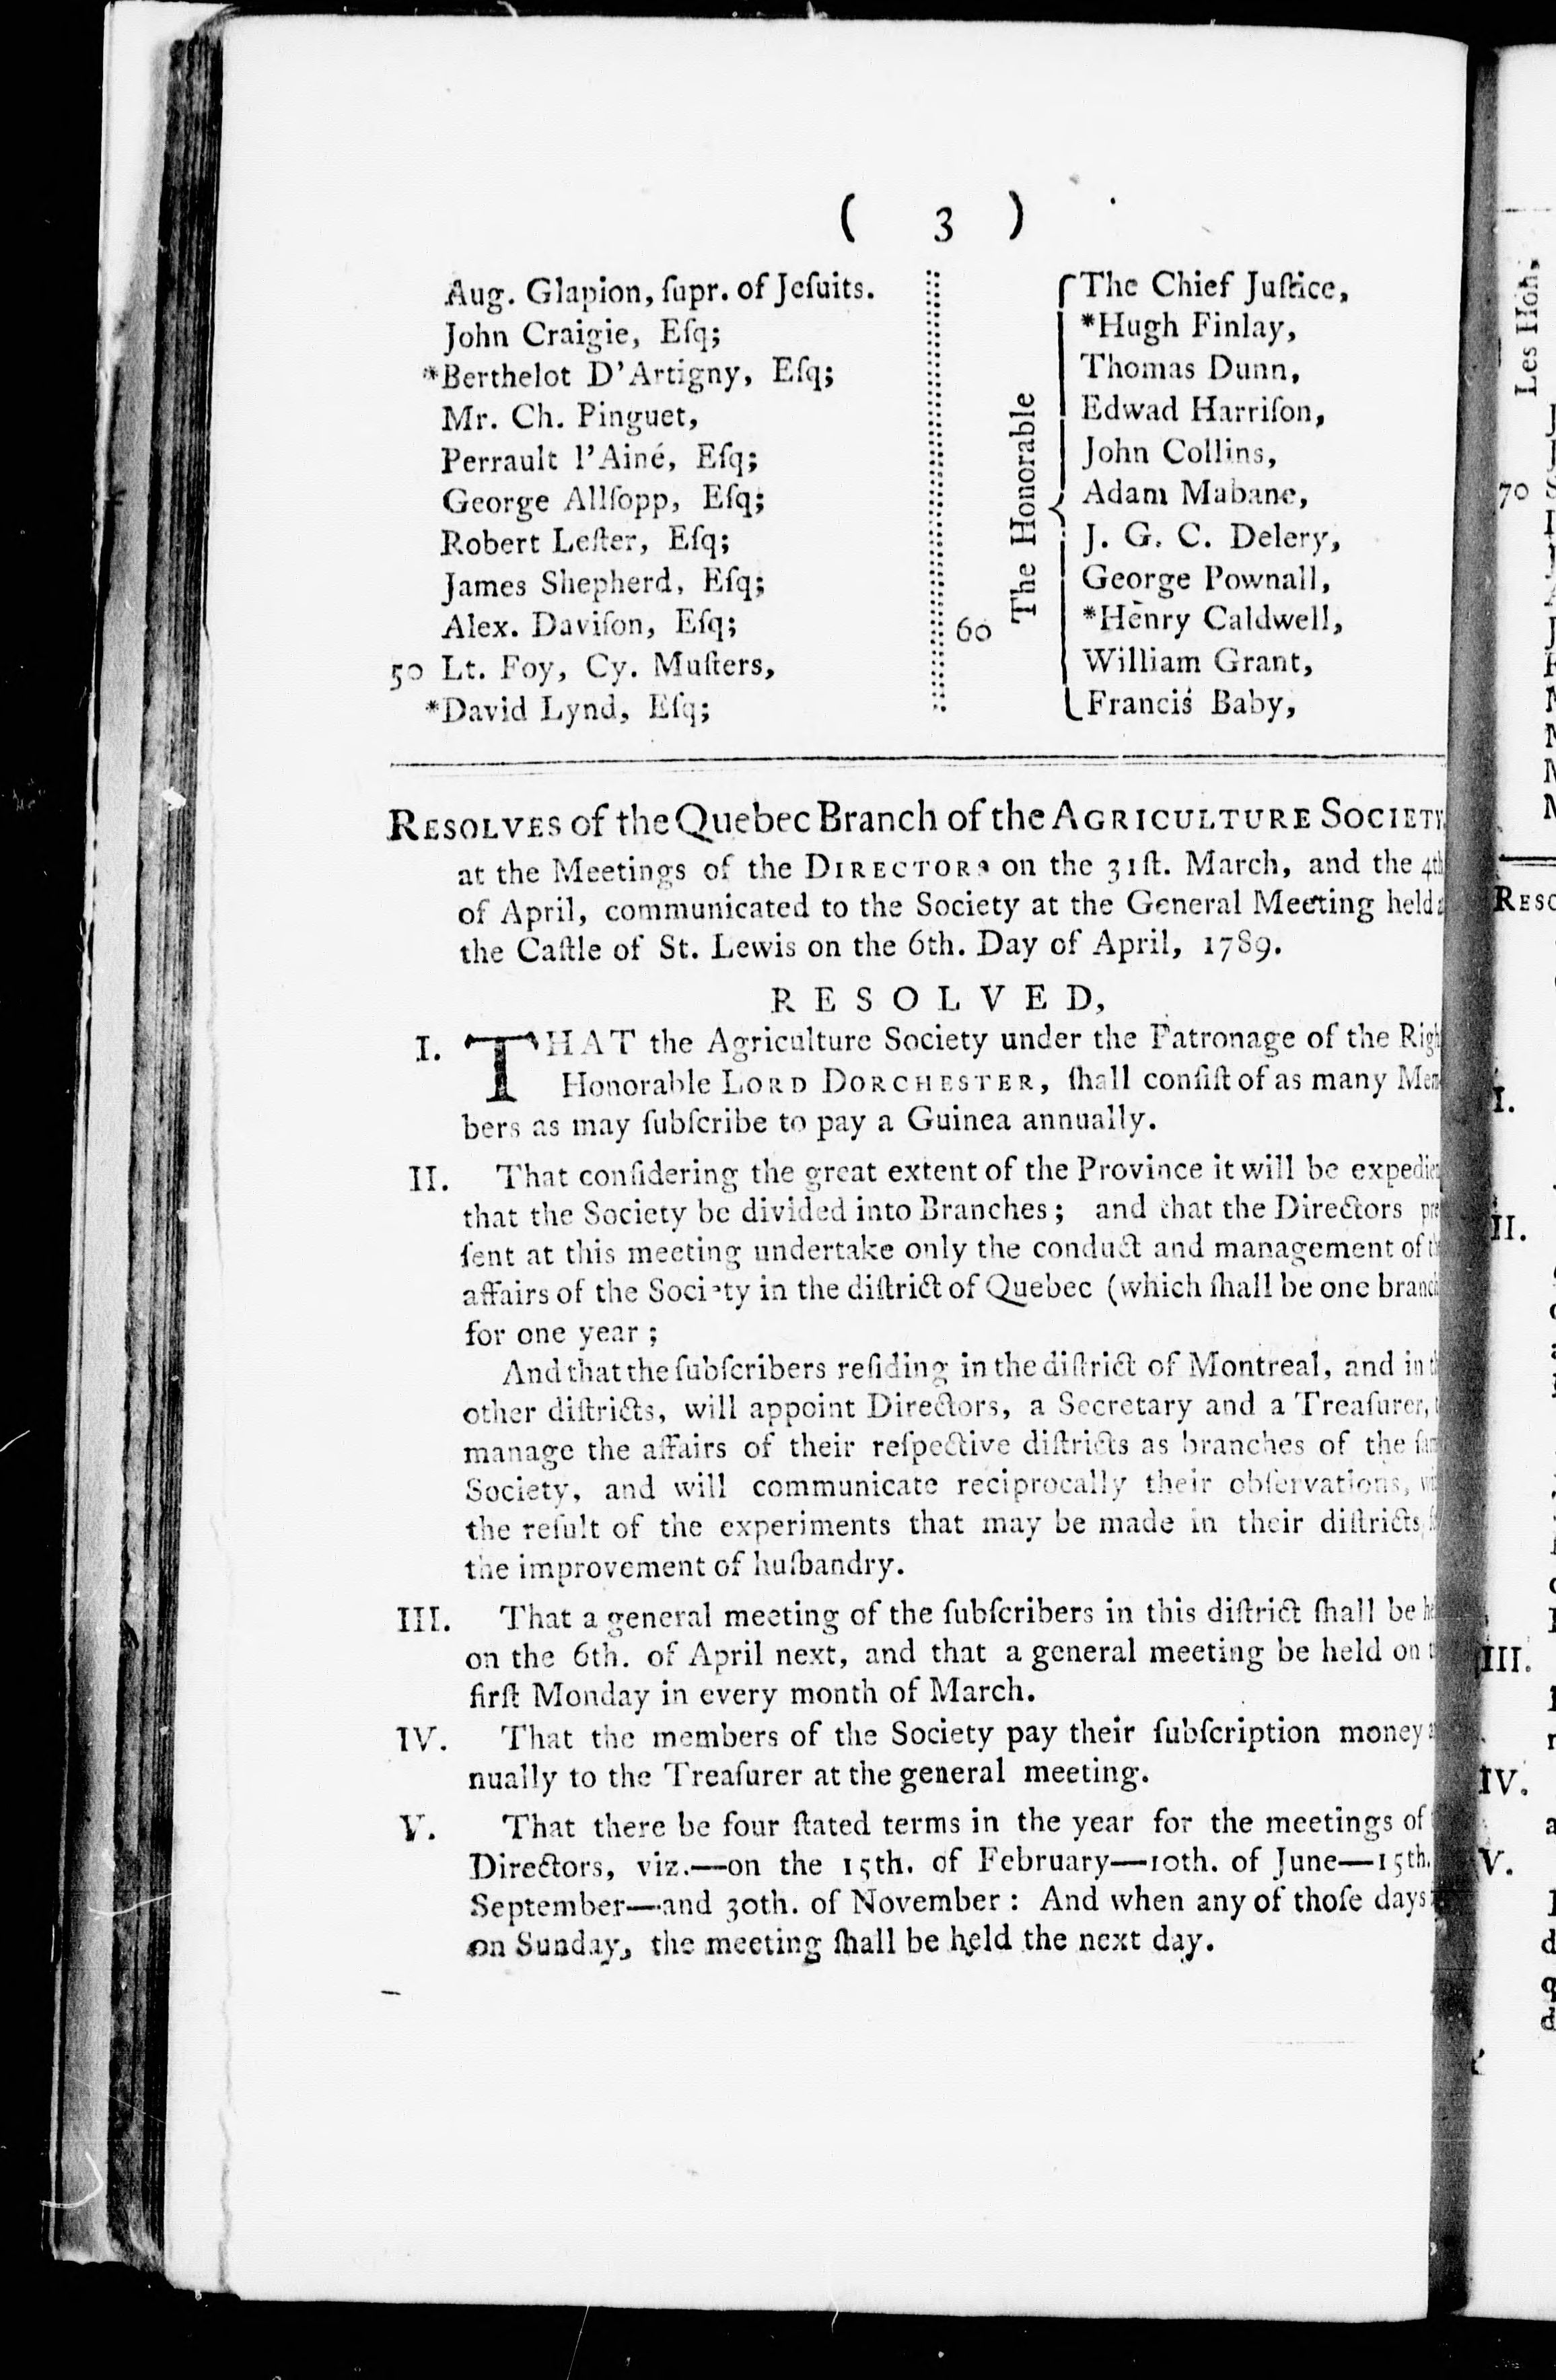 ( 3 )
Aug. Glapion, ſupr. of Jeſuits.
John Craigie, Eſq;
*Berthelot D'Artigny, Eſq;
Mr. Ch. Pinguet,
Perrault l'Ainé, Eſq;
George Allſopp, Eſq;
Robert Leſter, Eſq;
James Shepherd, Eſq;
Alex. Daviſon, Eſq;
50 Lt. Foy, Cy. Muſters,
*David Lynd, Eſq;
The Honorable
The Chief Juſtice,
*Hugh Finlay,
Thomas Dunn,
Edwad Harriſon,
John Collins,
Adam Mabane,
J. G. C. Delery,
George Pownall,
60 *Henry Caldwell,
William Grant,
Francis Baby,
RESOLVES of the Quebec Branch of the AGRICULTURE SOCIETY,
at the Meetings of the DIRECTORS on the 31ſt. March, and the 4th
of April, communicated to the Society at the General Meeting held
the Caſtle of St. Lewis on the 6th. Day of April, 1789.
RESOLVED,
I. THAT the Agriculture Society under the Patronage of the Righ
Honorable LORD DORCHESTER, ſhall conſiſt of as many Mem
bers as may ſubſcribe to pay a Guinea annually.
II. That conſidering the great extent of the Province it will be expedien
that the Society be divided into Branches; and that the Directors pre
ſent at this meeting undertake only the conduct and management of th
affairs of the Society in the diſtrict of Quebec (which ſhall be one branch
for one year;
And that the ſubſcribers reſiding in the diſtrict of Montreal, and in th
other diſtricts, will appoint Directors, a Secretary and a Treaſurer,
manage the affairs of their reſpective diſtricts as branches of the ſam
Society, and will communicate reciprocally their obſervations, wit
the reſult of the experiments that may be made in their diſtricts,
the improvement of huſbandry.
III. That a general meeting of the ſubſcribers in this diſtrict ſhall be he
on the 6th. of April next, and that a general meeting be held on t
firſt Monday in every month of March.
IV. That the members of the Society pay their ſubſcription money a
nually to the Treaſurer at the general meeting.
V. That there be four ſtated terms in the year for the meetings of
Directors, viz.—on the 15th. of February—10th. of June—15th.
September—and 30th. of November: And when any of thoſe days
on Sunday, the meeting ſhall be held the next day.
Les Hon.
70
RESO
I.
II.
III.
IV.
V.